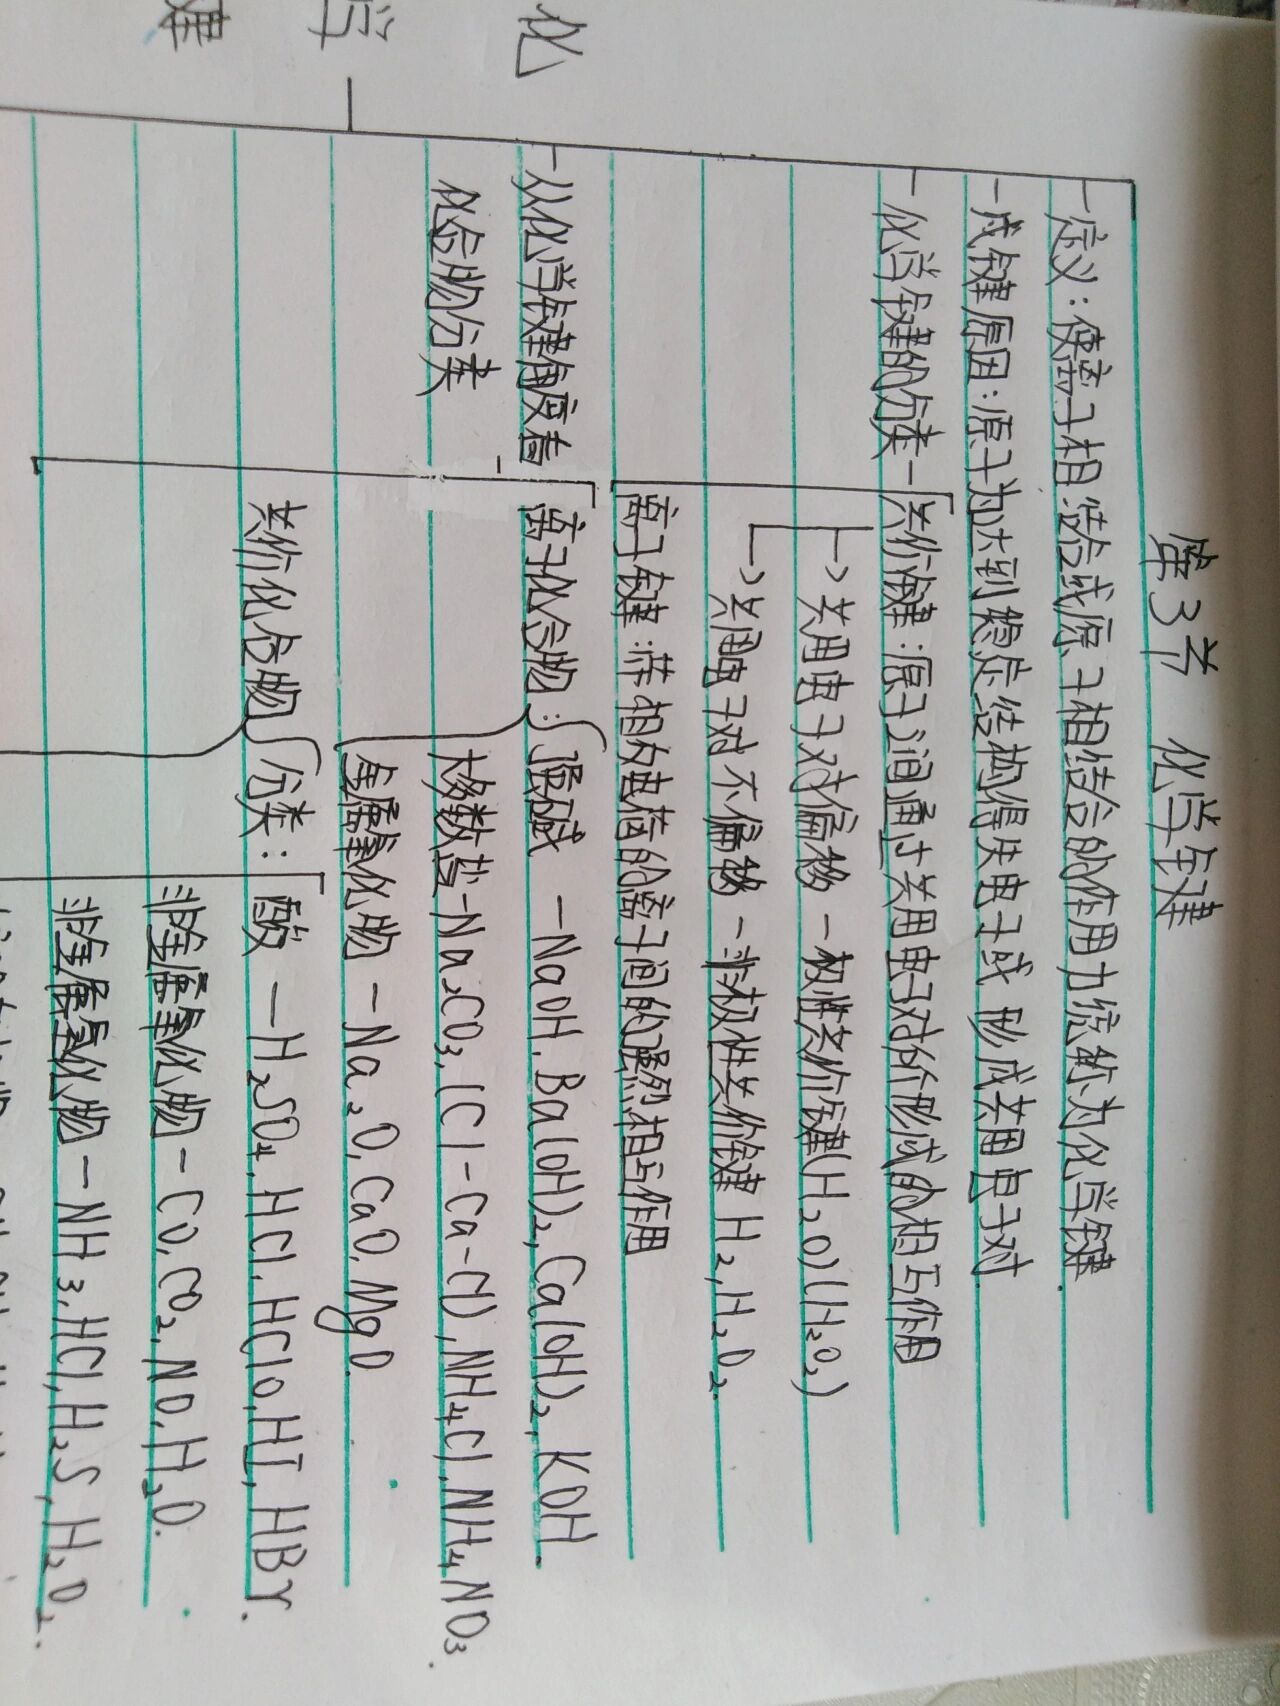 第3节 化学键
定义:使离子相结合或原子相结合的作用力统称为化学键.
成键原因:原子为达到稳定结构得失电子或 形成共用电子对
化学键的分类
共价键:原子之间通过共用电子对所形成的相互作用
→共用电子对偏移-极性共价键(H₂O)(H₂O₂)
→共用电子对不偏移-非极性共价键 H₂,H₂O₂.
离子键:带相反电荷的离子间的强烈相互作用
化学键
从化学键角度看
化合物分类
离子化合物:强碱 -NaOH.Ba(OH)₂,Ca(OH)₂,KOH.
大多数盐-Na₂CO₃,(Cl-Ca-Cl),NH₄Cl.NH₄NO₃.
金属氧化物-Na₂O,CaO,MgO.
共价化合物 分类:酸 -H₂SO₄,HCl.HClO,HI,HBr.
非金属氧化物-CO,CO₂,NO,H₂O.
非金属氢化物-NH₃,HCl,H₂S,H₂O₂.